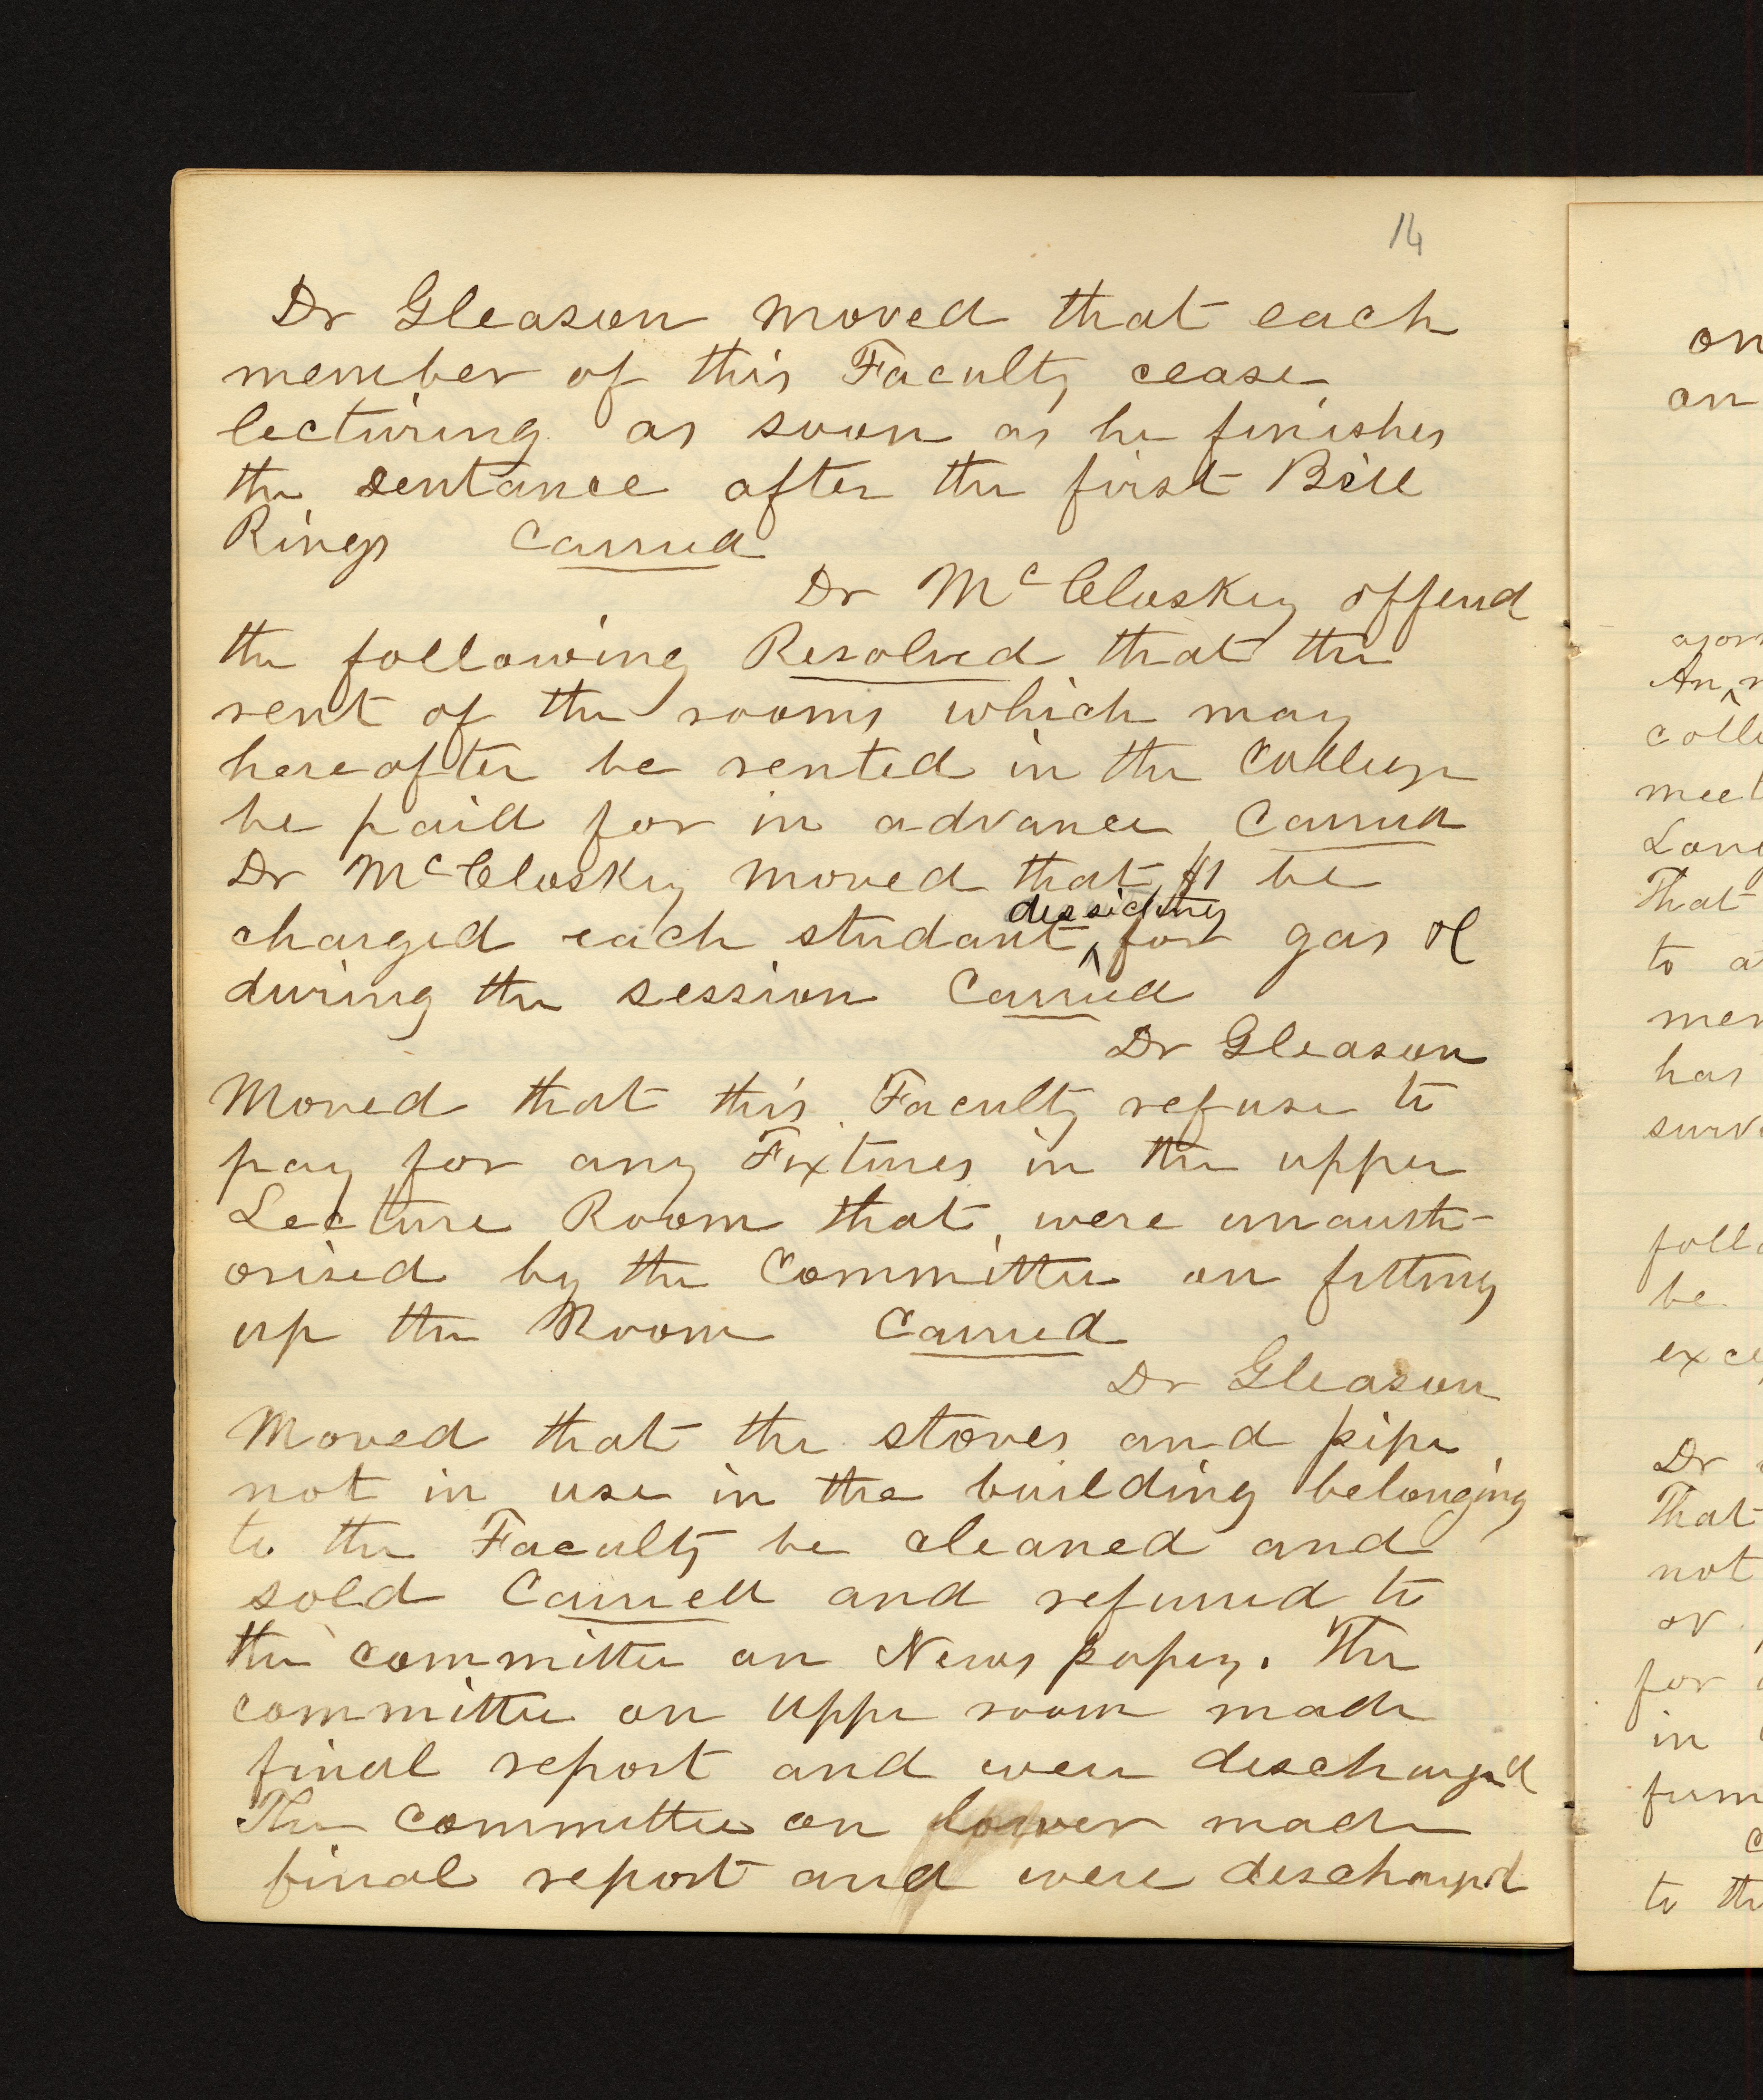 14
Dr Gleason moved that each
member of this Faculty cease
lecturing as soon as he finishes
the sentance after the first Bell
Rings Carried
Dr McCloskey offered
the following Resolved that the
rent of the rooms which may
hereafter be rented in the College
be paid for in advance Carried
Dr McCloskey moved that $1 be
dissicting
charged each studant ^ for gas &c
during the session Carried
Dr Gleason
Moved that this Faculty refuse to
pay for any Fixtures in the upper
Lecture Room that were unauth-
orised by the Committee on fitting
up the Room Carried
Dr Gleason
Moved that the stoves and pipe
not in use in the building belonging
to the Faculty be cleaned and
sold Carried and refurred to
the committee on News papers. The
committee on upper room made
final report and were discharged
The Committee on lower made
final report and were discharged
on
an
An
colle
meet
Long
That
to a
mem
has
surv
follo
be
exce
Dr
That
not
or
for
in
furn
to the